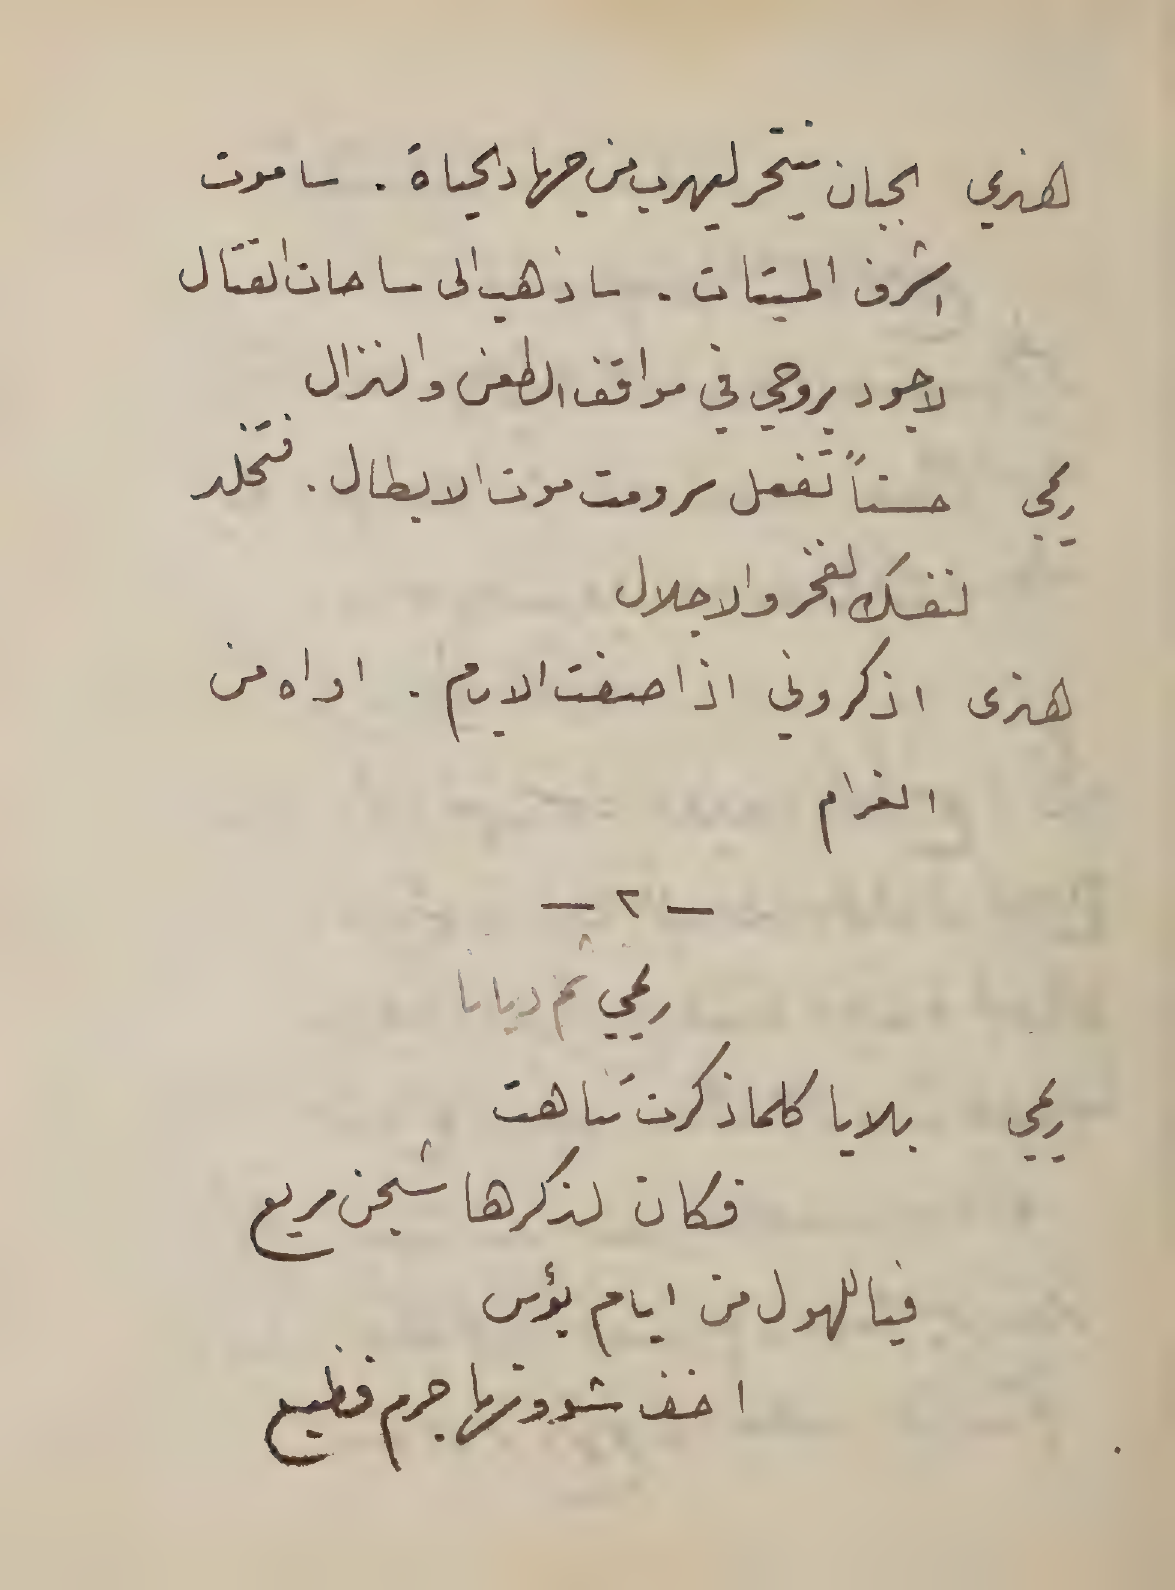 هنري الجبان ينتحر ليهرب من جهاد الحياة . ساموت
اشرف الميتات . ساذهب الى ساحات القتال
لاجود بروحي في مواقف الطعن والنزال
ريمي حسناً تفعل سر ومت موت الابطال . فتخلد
لنفسك الفخر والاجلال
هنرى اذكروني اذا صفت الايام . اواه من
الغرام
— ٢ —
ريمي ثم ديانا
ريمي بلايا كلما ذكرت تناهت
فكان لذكرها شجن مريع
فيا للهول من ايام بؤس
اخف شوونها جرم فظيع